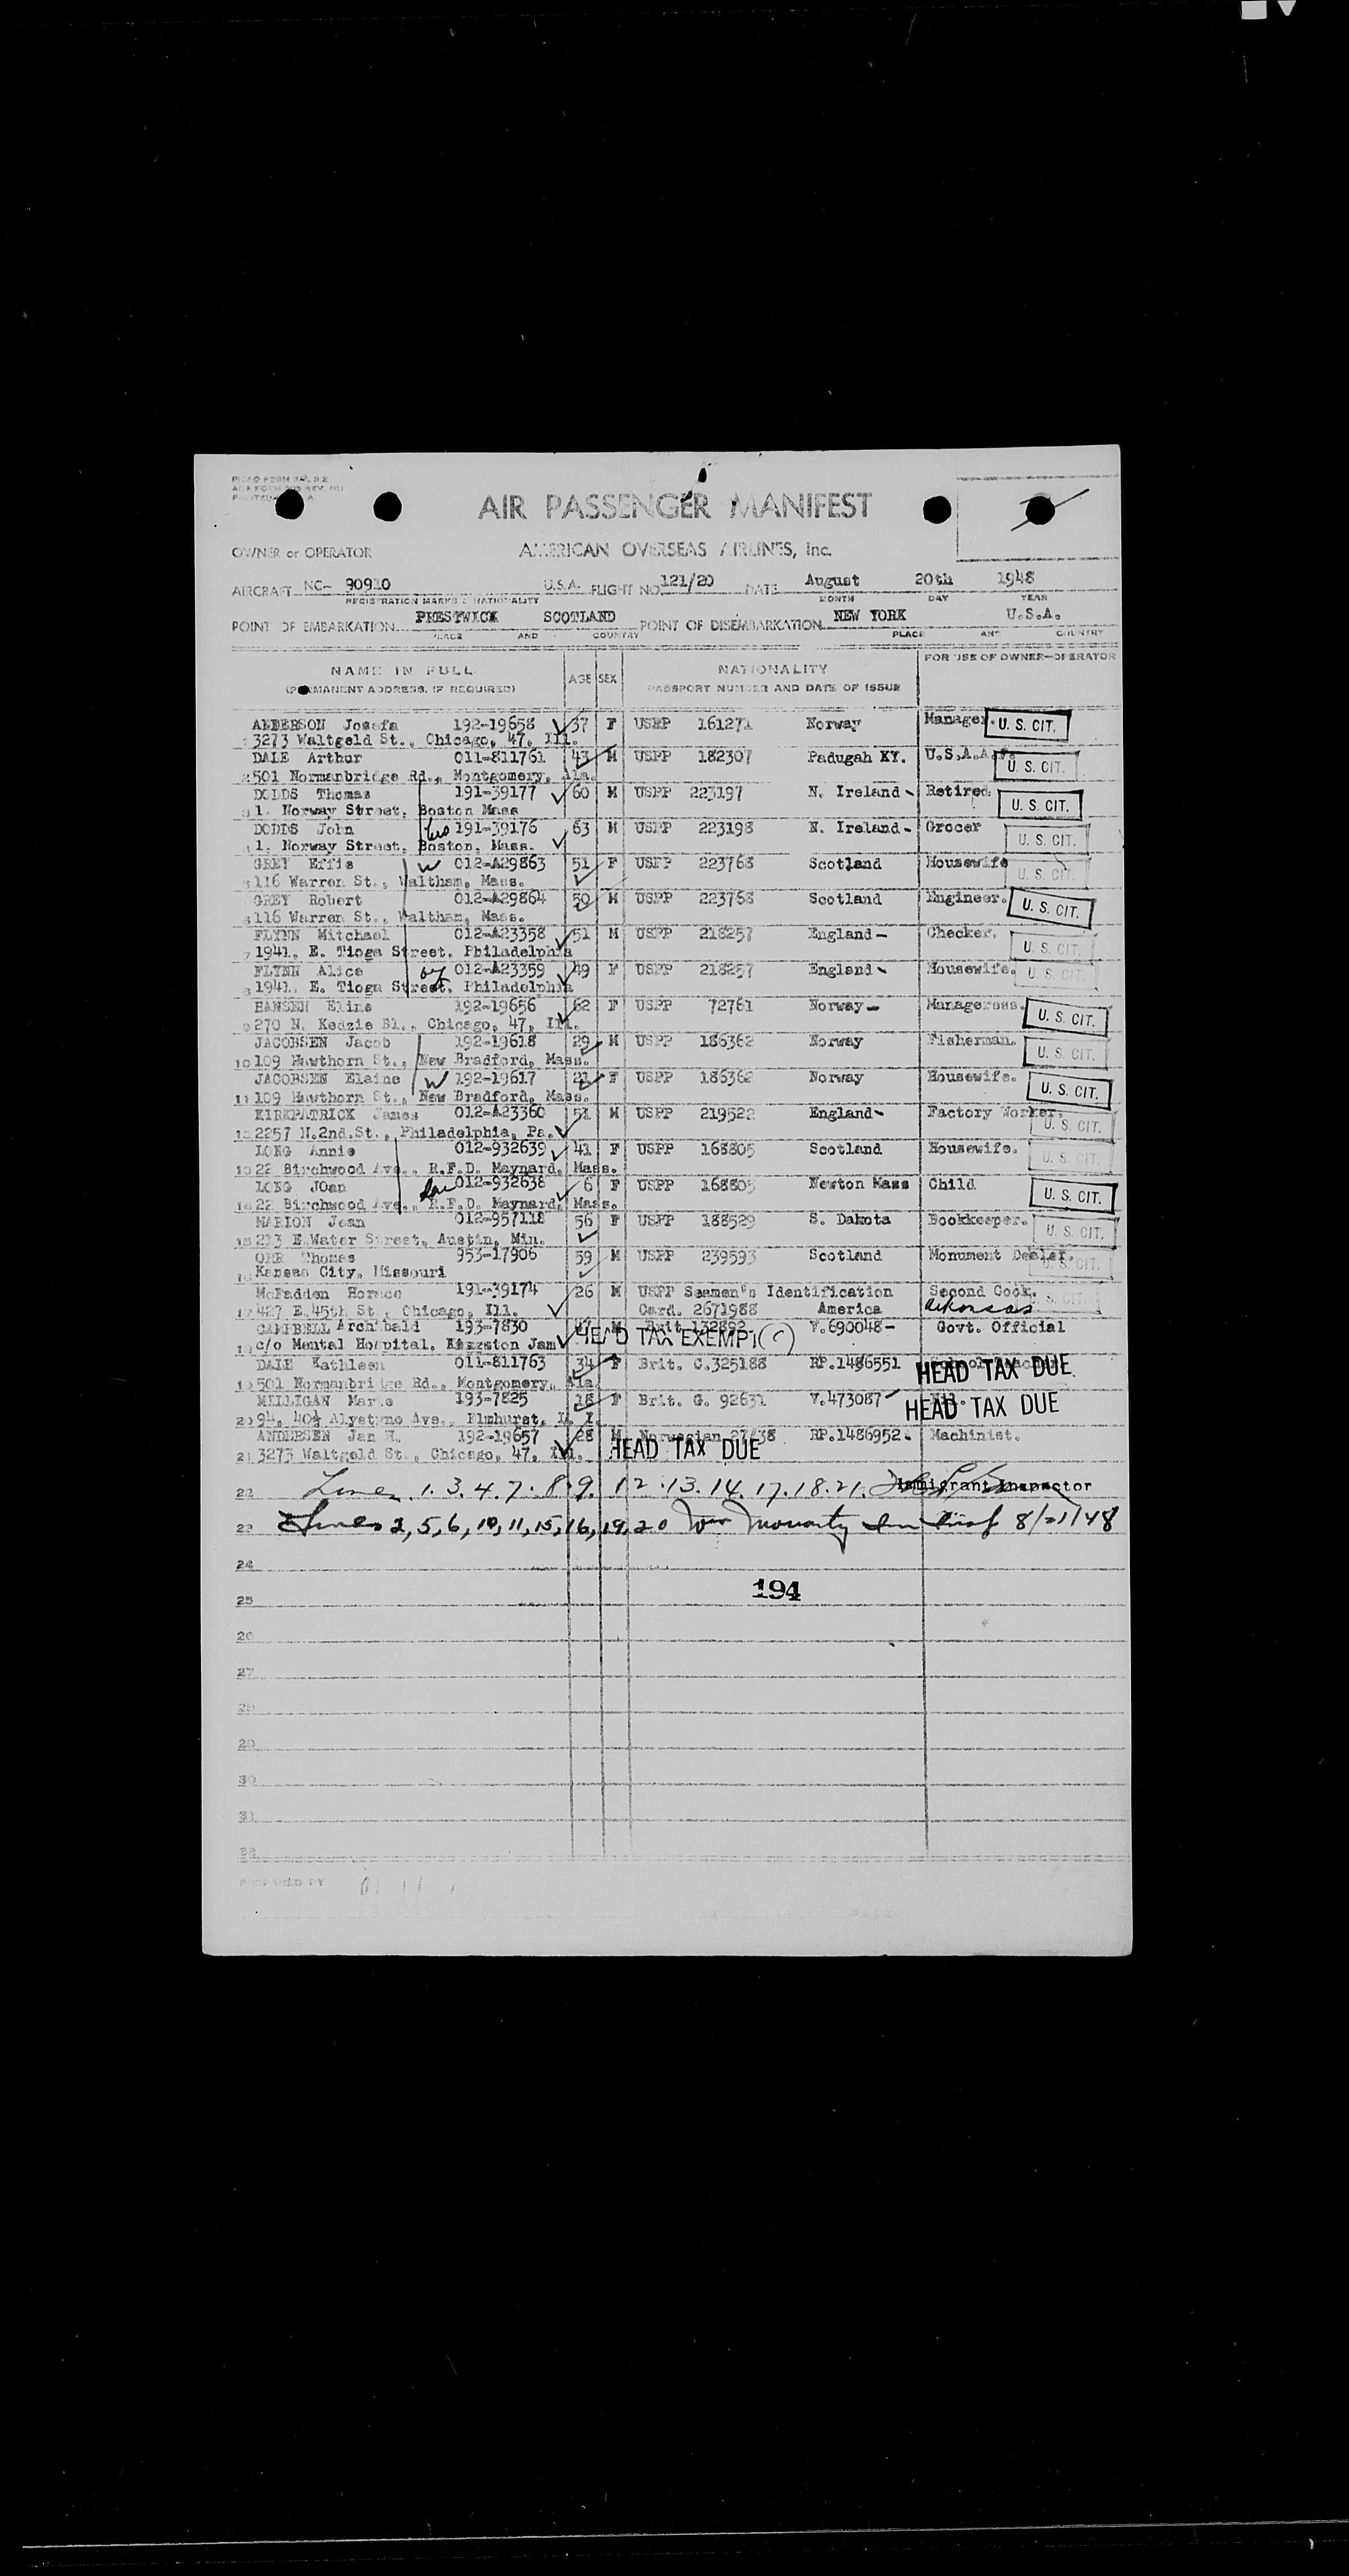 AIR PASSENGER MANIFEST
OWNER or OPERATOR AMERICAN OVERSEAS AIRLINES, Inc.
AIRCRAFT NC- 90910 U.S.A. FLIGHT NO. 121/20 DATE August 20th 1948
REGISTRATION MARKS & NATIONALITY MONTH DAY YEAR
POINT OF EMBARKATION PRESTWICK SCOTLAND POINT OF DISEMBARKATION NEW YORK U.S.A.
PLACE AND COUNTRY PLACE AND COUNTRY
NAME IN FULL AGE SEX NATIONALITY FOR USE OF OWNER-OPERATOR
(PERMANENT ADDRESS, IF REQUIRED) PASSPORT NUMBER AND DATE OF ISSUE
ANDERSON Josefa 192-19658 37 F USPP 161271 Norway Manager. U. S. CIT.
1 3273 Waltgeld St., Chicago, 47, Ill.
DALE Arthur 011-811761 43 M USPP 182307 Padugah KY. U.S.A.A.F. U. S. CIT.
2 501 Normanbridge Rd., Montgomery, Ala.
DODDS Thomas 191-39177 60 M USPP 223197 N. Ireland - Retired. U. S. CIT.
3 1. Norway Street, Boston Mass
DODDS John 191-39176 63 M USPP 223198 N. Ireland - Grocer U. S. CIT.
4 1. Norway Street, Boston, Mass.
GREY Effie W 012-A29863 51 F USPP 223768 Scotland Housewife U. S. CIT.
5 116 Warren St., Waltham, Mass.
GREY Robert 012-A29864 50 M USPP 223768 Scotland Engineer. U. S. CIT.
6 116 Warren St., Waltham, Mass.
FLYNN Mitchael 012-A23358 51 M USPP 218257 England - Checker. U. S. CIT.
7 1941. E. Tioga Street, Philadelphia
FLYNN Alice 012-A23359 49 F USPP 218257 England - Housewife. U. S. CIT.
8 1941. E. Tioga Street, Philadelphia
HANSEN Eline 192-19656 62 F USPP 72761 Norway - Manageress. U. S. CIT.
9 270 N. Kedzie Bl., Chicago, 47, Ill.
JACOBSEN Jacob 192-19618 29 M USPP 186362 Norway Fisherman. U. S. CIT.
10 109 Hawthorn St., New Bradford, Mass.
JACOBSEN Elaine W 192-19617 21 F USPP 186362 Norway Housewife. U. S. CIT.
11 109 Hawthorn St., New Bradford, Mass.
KIRKPATRICK James 012-A23360 51 M USPP 219522 England - Factory Worker. U. S. CIT.
12 2257 N.2nd.St., Philadelphia, Pa.
LONG Annie 012-932639 41 F USPP 168805 Scotland Housewife. U. S. CIT.
13 22 Birchwood Ave., R.F.D. Maynard, Mass.
LONG JOan 012-932638 6 F USPP 168805 Newton Mass Child U. S. CIT.
14 22 Birchwood Ave., R.F.D. Maynard, Mass.
MARION Jean 012-957118 56 F USPP 188529 S. Dakota Bookkeeper. U. S. CIT.
15 213 E.Water Street, Austin, Min.
ORR Thomas 953-17906 59 M USPP 239593 Scotland Monument Dealer. U. S. CIT.
16 Kansas City, Missouri
McFadden Horace 191-39174 26 M USPP Seamen's Identification Second Cook. U. S. CIT.
17 427 E.45th St., Chicago, Ill. Card. 2671988 America Arkansas
CAMPBELL Archibald 193-7830 47 M Brit 132892 V.690048 - Govt. Official
18 c/o Mental Hospital, Kingston Jam HEAD TAX EXEMPT (C)
DALE Kathleen 011-811763 34 F Brit. C.325188 RP.1486551 HEAD TAX DUE
19 501 Normanbridge Rd., Montgomery, Ala
MILLIGAN 193-7825 18 F Brit. G. 92631 V.473087 HEAD TAX DUE
20 94, 40½ Ave., Elmhurst, L. I.
ANDERSEN Jan H. 192-19657 28 M Norwegian 27/38 RP.1486952. Machinist.
21 3273 Waltgeld St., Chicago, 47, Ill. HEAD TAX DUE
22 Lines 1. 3. 4. 7. 8. 9. 12. 13. 14. 17. 18. 21. Immigrant Inspector
23 Lines 2, 5, 6, 10, 11, 15, 16, 19, 20 Wm Moriarty Im Insp 8/21/48
24
194
25
26
27
28
29
30
31
32
PREPARED BY